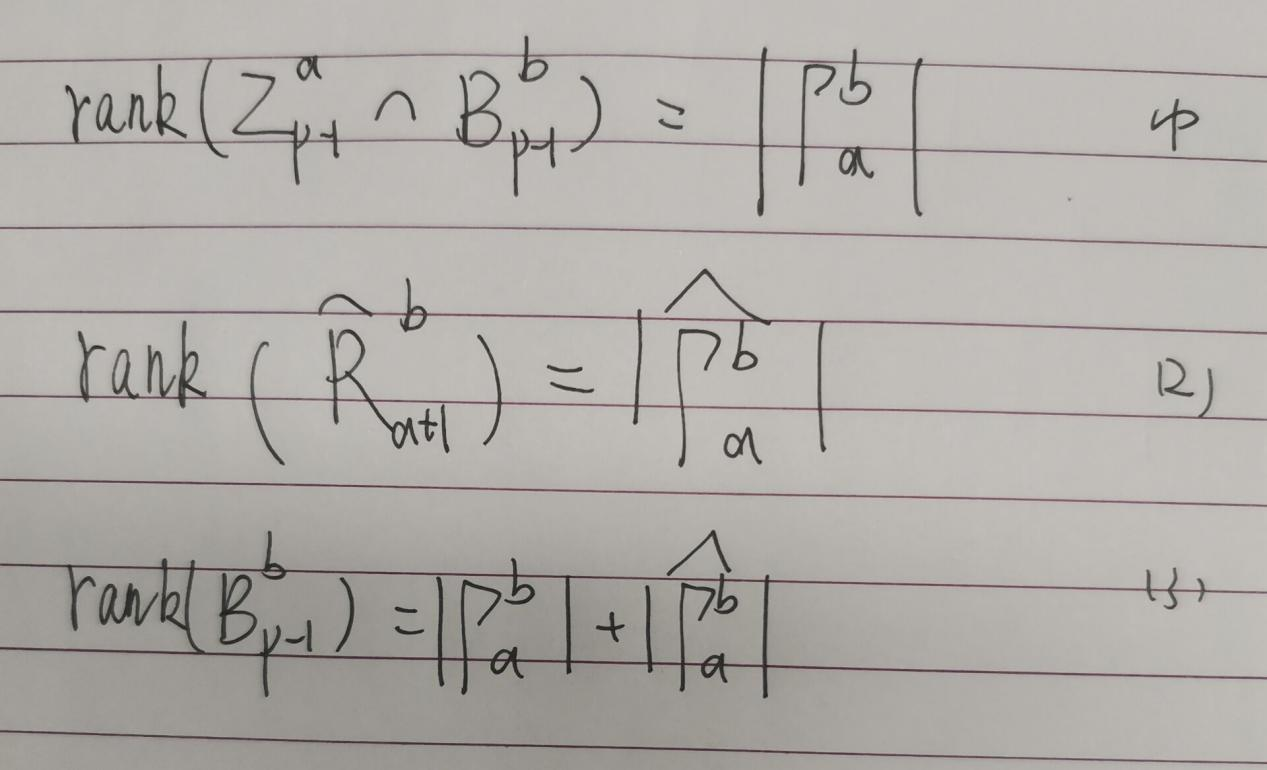 rank(Z_{p-1}^{a} ∩ B_{p-1}^{b}) = |Γ_{a}^{b}| (1)
rank(\widetilde{R}_{a+1}^{b}) = |\widehat{Γ_{a}^{b}}| (2)
rank(B_{p-1}^{b}) = |Γ_{a}^{b}| + |\widehat{Γ_{a}^{b}}| (3)